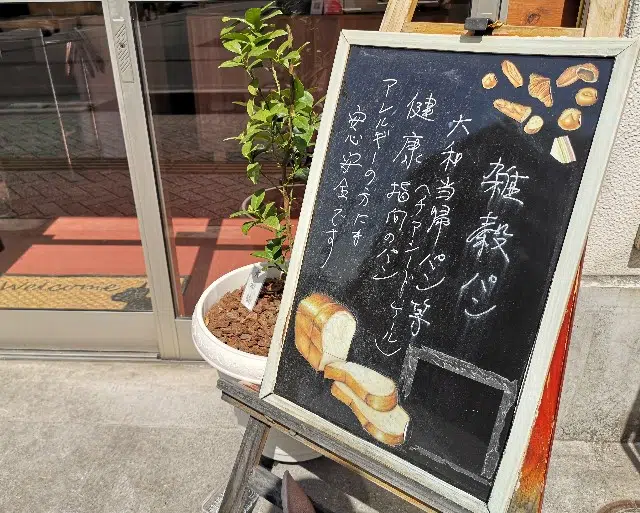 雑穀パン
大和当帰パン等
(ヘチアントトケル)
健康指向のパン
アレルギーの方にも
安心安全です
Welcome